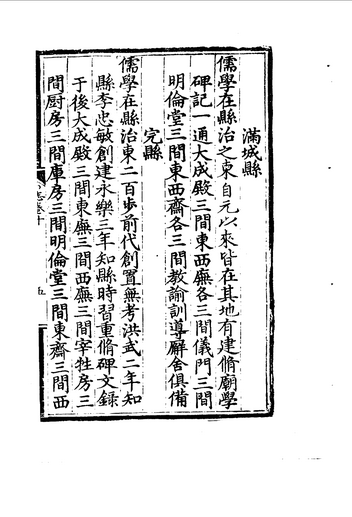 滿城縣
儒學在縣治之東自元以來皆在其地有建脩廟學
碑記一通大成殿三間東西廡各三間儀門三間
明倫堂三間東西齋各三間教諭訓導廨舍俱備
完縣
儒學在縣治東二百步前代創置無考洪武二年知
縣李忠敏創建永樂三年知縣時習重脩碑文錄
于後大成殿三間東廡三間西廡三間宰牲房三
間厨房三間庫房三間明倫堂三間東齋三間西